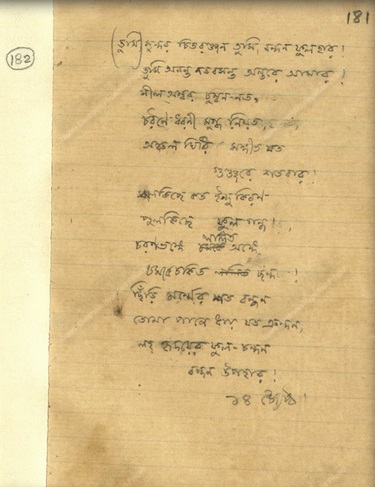 181
182
(তুমি) সুন্দর হৃদিরঞ্জন তুমি নন্দন ফুলহার!
তুমি অনন্ত নববসন্ত অন্তরে আমার!
নীল অম্বর চুম্বন-নত,
চরণে ধরণী মুগ্ধ নিয়ত,
অঞ্চল ঘেরি সঙ্গীত যত
গুঞ্জরে শতবার!
ঝলকিছে কত ইন্দু কিরণ
পুলকিছে ফুল গন্ধ!
চরণভঙ্গে ললিত অঙ্গে
চমকে চকিত ছন্দ!
ছিঁড়ি মর্মের শত বন্ধন
তোমা পানে ধায় যত ক্রন্দন,
লহ হৃদয়ের ফুল-চন্দন
বন্দন উপহার!
১৪